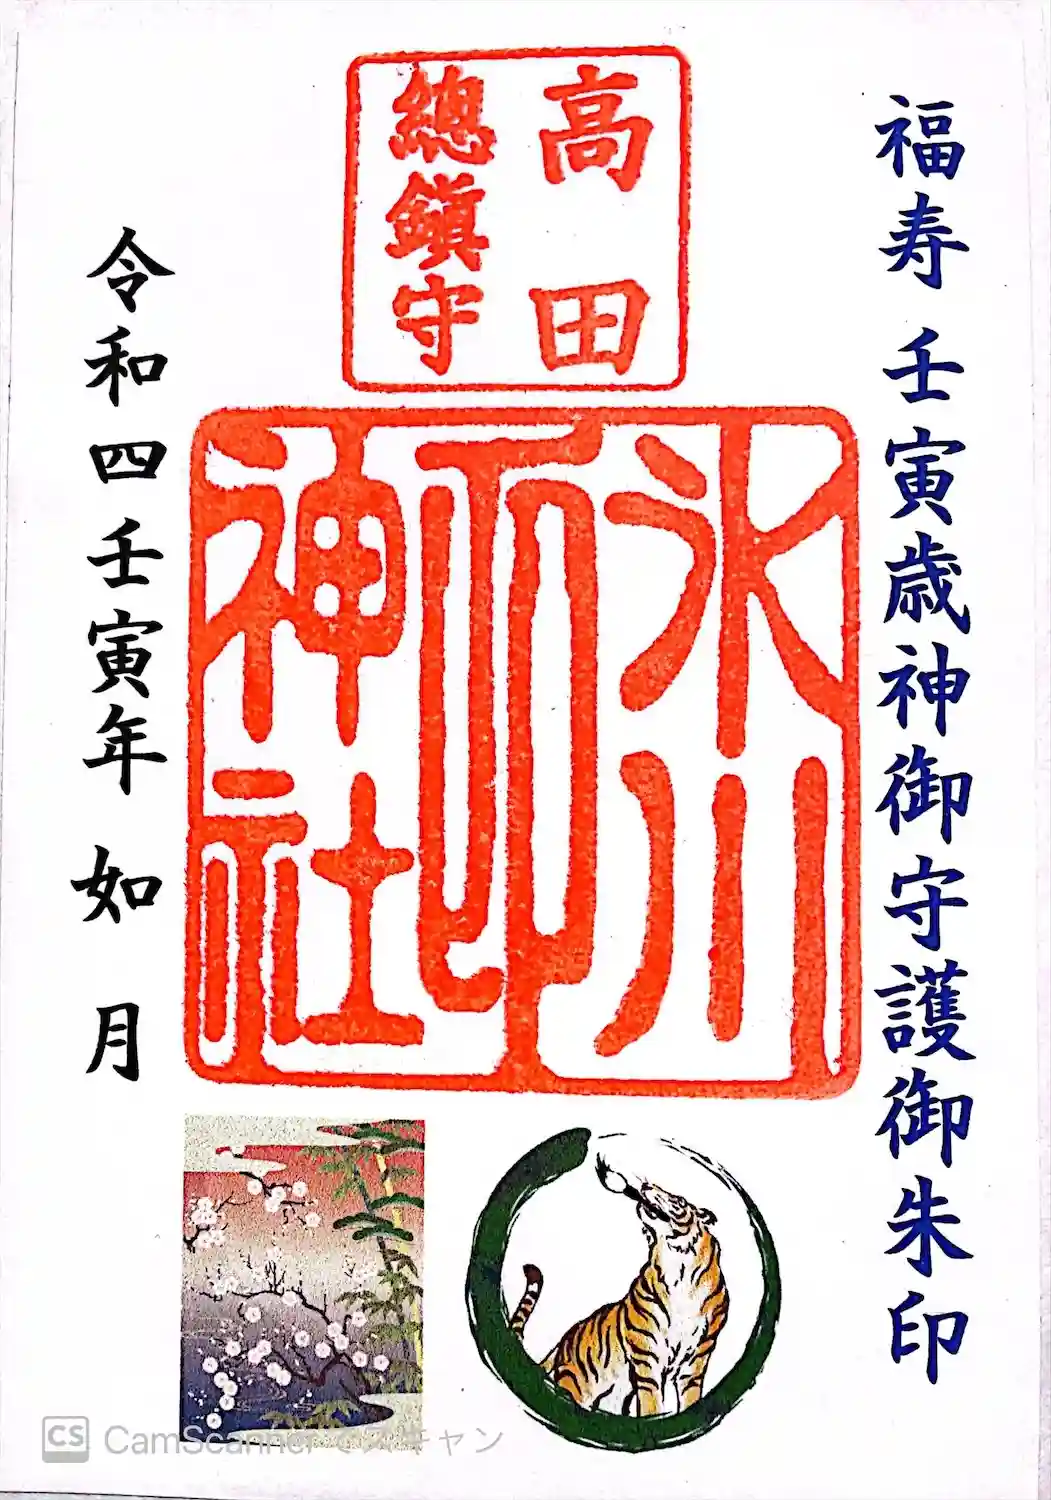 福寿 壬寅歳神御守護御朱印
高田
總鎮守
氷川
神社
令和四壬寅年 如月
CS CamScannerでスキャン